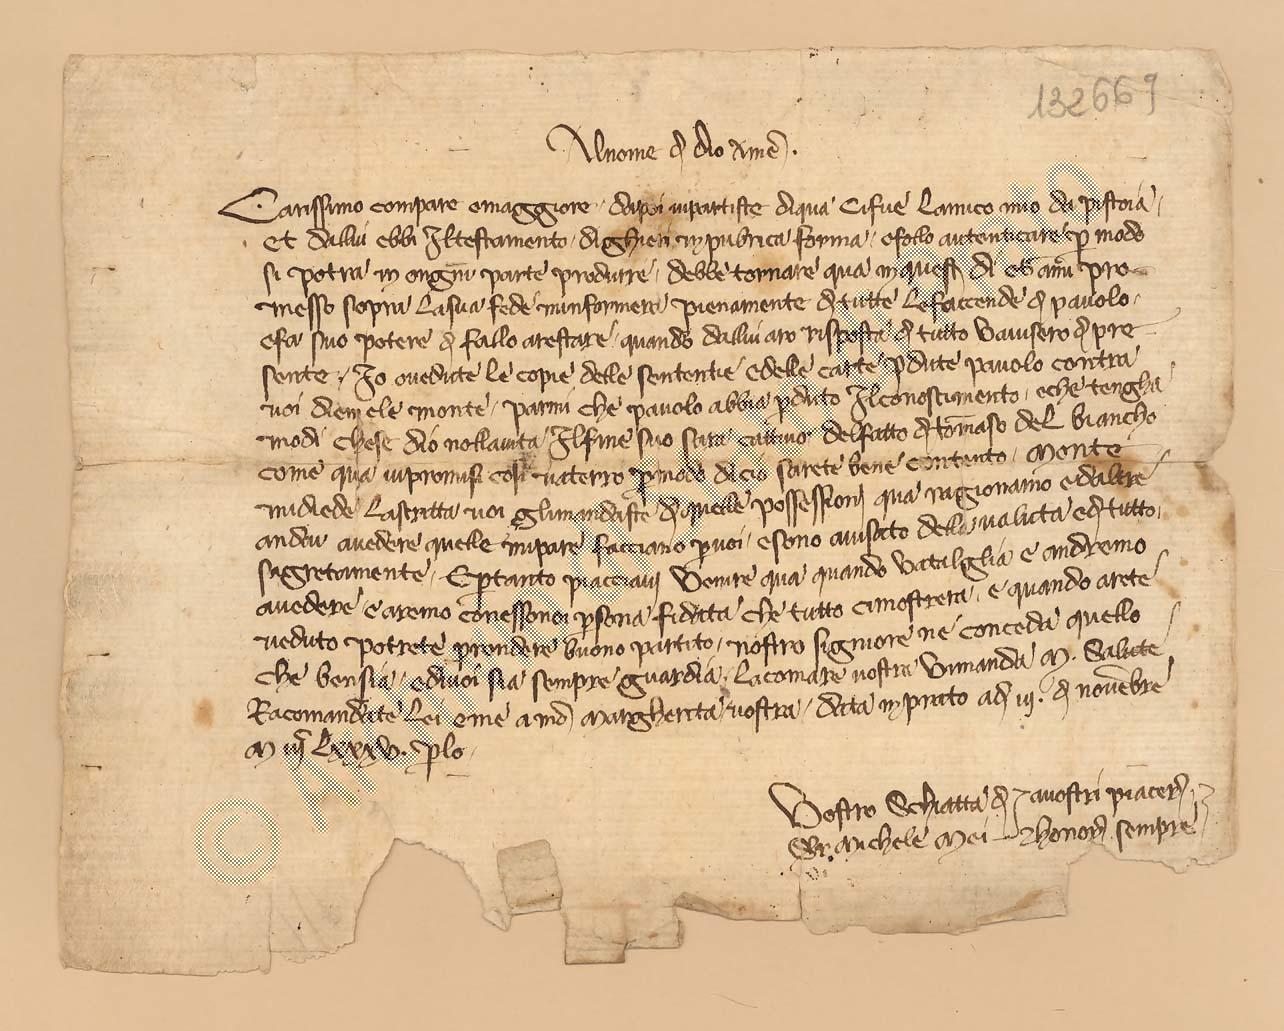 132669
Al nome di dio Amē.
Carissimo compare e maggiore dapoi vi partiste di qua Ci fue l amico mio da pistoia
et dallui ebbi Il testamento di ghieri in pubrica forma e follo autenticare p modo
si potra in ogni parte producere debbe tornare qua in questi di et ami pro
messo sopra la sua fede m informera pienamente di tutte le faccende di pavolo
e fa suo potere di fallo arestare quando dallui aro risposta di tutto v avisero di pre
sente. Io o vedute le copie delle sententie e delle carte pdute pavolo contra
voi di em ele monte parmi che pavolo abbia pduto Il conoscimento e che tengha
modi che se dio noll aiuta Il fine suo sara cattivo del fatto di tomaso del biancho
come qua vi promisi cosi v aterro p modo di cio sarete bene contento Monte
mi diede la scritta voi gli mandaste di quelle possessioni qua ragionamo ed altre
andai a vedere quelle mi pare facciano p voi e sono avisato della valuta e di tutto
sagretamente. E ptanto piacciavi venire qua quando v atalglia e andremo
a vedere e aremo con esso noi psona fidata che tutto ci mostrera e quando arete
veduto potrete prendere buono partito nostro signiore ne conceda quello
che ben sia e di voi sia sempre guardia. La comare vostra vi manda M. salute
Racomandate lei e me a mad Margherita vostra data in prato a di iij. di novēbre
M iij Lxxxv. plo
Vostro Schiatta di a vostri piaceri
Ser Michele Mei honori sempre